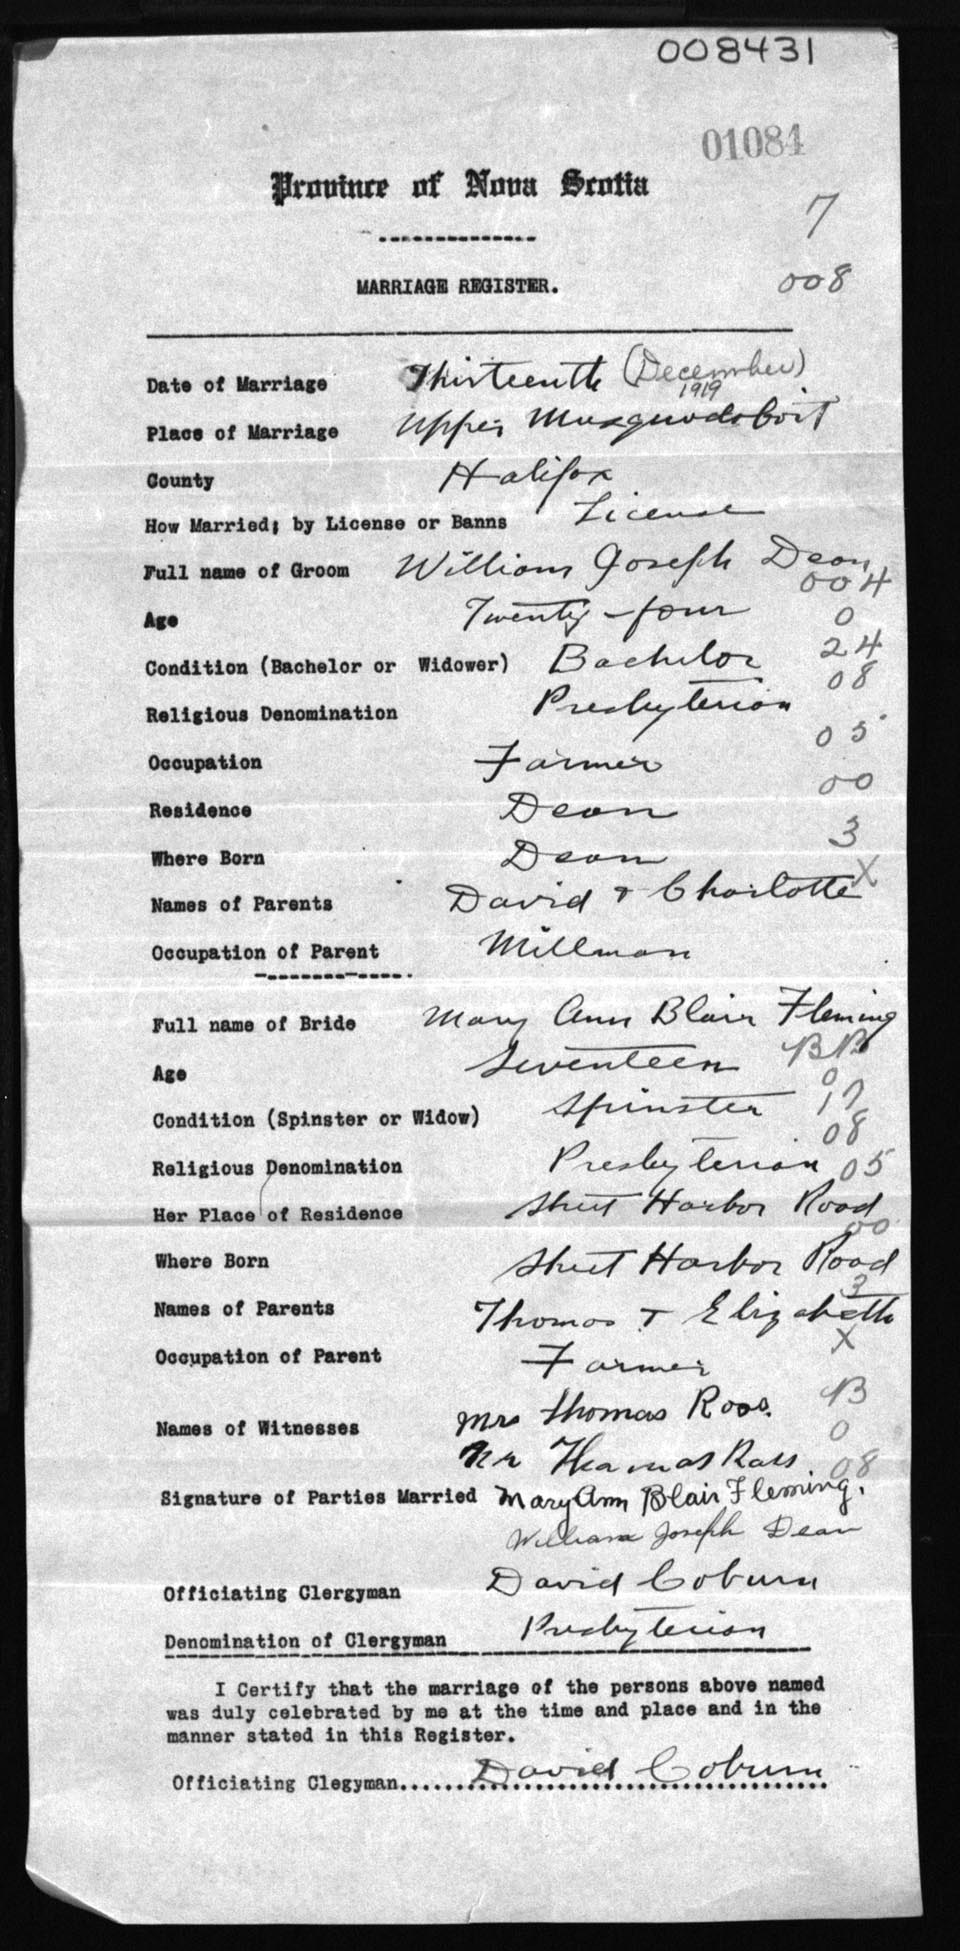 008431
01084
Province of Nova Scotia
7
MARRIAGE REGISTER.
008
Date of Marriage Thirteenth (December)
1919
Place of Marriage Upper Musquodoboit
County Halifax
How Married; by License or Banns License
Full name of Groom William Joseph Dean
004
Age Twenty-four 0
Condition (Bachelor or Widower) Bachelor 24
08
Religious Denomination Presbyterian
05
Occupation Farmer
00
Residence Dean
3
Where Born Dean
X
Names of Parents David & Charlotte
Occupation of Parent Millman
Full name of Bride Mary Ann Blair Fleming
Age Seventeen
0
Condition (Spinster or Widow) Spinster 17
08
Religious Denomination Presbyterian 05
Her Place of Residence Sheet Harbor Road
00
Where Born Sheet Harbor Road
3
Names of Parents Thomas & Elizabeth
X
Occupation of Parent Farmer
B
Names of Witnesses Mrs Thomas Ross.
0
Mr Thomas Ross
08
Signature of Parties Married Mary Ann Blair Fleming.
William Joseph Dean
Officiating Clergyman David Coburn
Denomination of Clergyman Presbyterian
I Certify that the marriage of the persons above named
was duly celebrated by me at the time and place and in the
manner stated in this Register.
Officiating Clegyman David Coburn